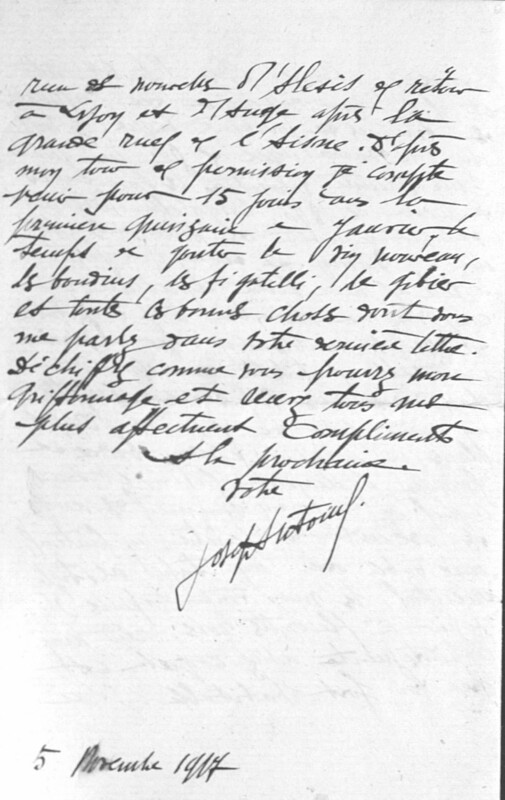 reçu de nouvelles d'Alexis de retour
à Lyon et d'Ange après la
grande ruée de l'Aisne. D'après
mon tour de permission je compte
venir pour 15 jours dans la
première quinzaine de Janvier, le
temps de goûter le vin nouveau,
les boudins, les figatelli, le gibier
et toutes ces bonnes choses dont vous
me parlez dans votre dernière lettre.
Déchiffrez comme vous pourrez mon
griffonnage et recevez tous mes
plus affectueux Compliments
A la prochaine.
Votre
Joseph Antoine
5 Novembre 1917